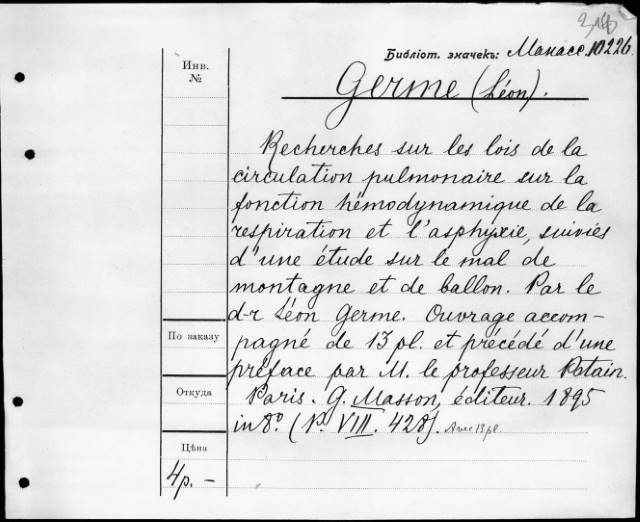 Библіот. значекъ: Манасс. 10226
Инв.
№
Germe (Léon).
Recherches sur les lois de la
circulation pulmonaire sur la
fonction hémodynamique de la
respiration et l'asphyxie, suivies
d'une étude sur le mal de
montagne et de ballon. Par le
d-r Léon Germe. Ouvrage accom-
По заказу
pagné de 13 pl. et précédé d'une
préface par M. le professeur Potain.
Откуда
Paris. G. Masson, éditeur. 1895
in 8.° (P. VIII. 428). Avec 13 pl.
Цѣна
4р. -